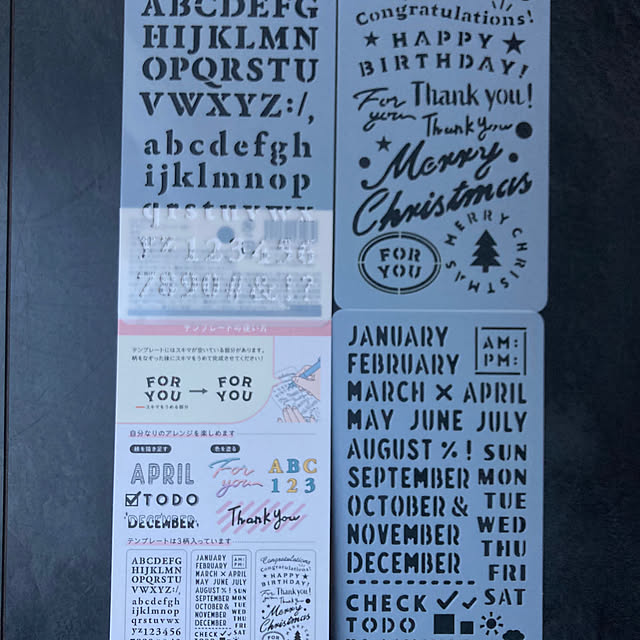 ABCDEFG
HIJKLMN
OPQRSTU
VWXYZ:/,
abcdefgh
ijklmnop
qrstuvwx
yz123456
7890&!?
テンプレートの使い方
テンプレートにはスキマが空いている部分があります。
柄をなぞった後にスキマをうめて完成させてください!
FOR YOU → FOR YOU
スキマをうめる部分
自分なりのアレンジを楽しめます
線を描き足す
色を塗る
APRIL
TODO
DECEMBER
For you
ABC
123
Thank you
テンプレートは3柄入っています
ABCDEFG
HIJKLMN
OPQRSTU
VWXYZ:/,
abcdefgh
ijklmnop
qrstuvwx
yz123456
JANUARY AM:
FEBRUARY PM:
MARCH × APRIL
MAY JUNE JULY
AUGUST %! SUN
SEPTEMBER MON
OCTOBER & TUE
NOVEMBER WED
DECEMBER THU
FRI
CHECK SAT
Congratulations
Congratulations!
HAPPY
BIRTHDAY!
For you Thank you!
Thank you
Merry
Christmas
FOR
Congratulations!
HAPPY
BIRTHDAY!
For you
Thank you!
Thank you
Merry
Christmas
FOR
YOU
MERRY CHRISTMAS
JANUARY
AM:
PM:
FEBRUARY
MARCH × APRIL
MAY JUNE JULY
AUGUST %! SUN
SEPTEMBER MON
OCTOBER & TUE
NOVEMBER WED
DECEMBER THU
FRI
CHECK SAT
TODO